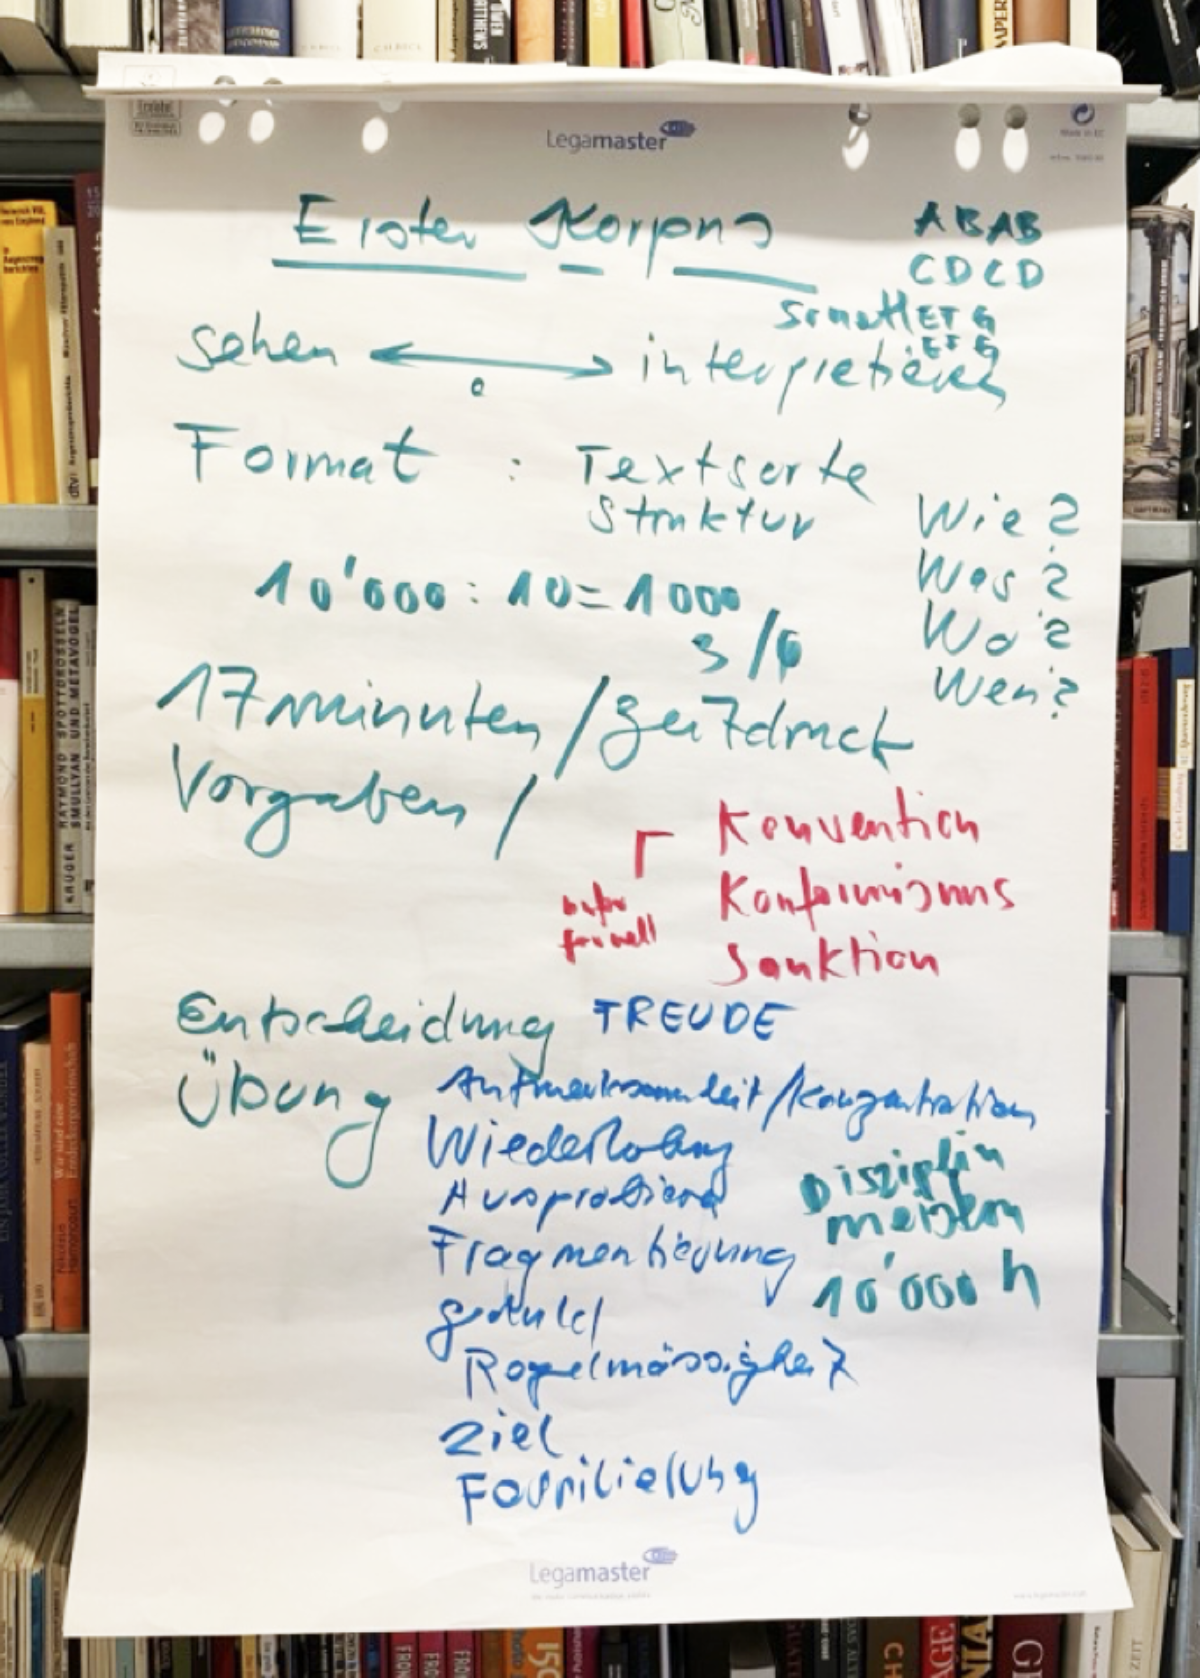 Legamaster
Erster Korpus
ABAB
CDCD
Sonett EFG
EFG
sehen ↔ interpretieren
Format : Textsorte
Struktur
Wie?
Was?
Wo?
Wer?
10'000 : 10 = 1000
3/6
17 minuten / Zeitdruck
Vorgaben /
Konvention
Konformismus
Sanktion
formell
Entscheidung FREUDE
Übung Aufmerksamkeit/Konzentration
Wiederholung
Ausprobieren
Fragmentierung
geduld
Regelmässigkeit
Ziel
Disziplin
meistern
10'000 h
Legamaster
RAYMOND SPOTTDROSSELN
SMULLYAN UND METAVÖGEL
KRÜGER
dtv
Nikolaus
Harnoncourt